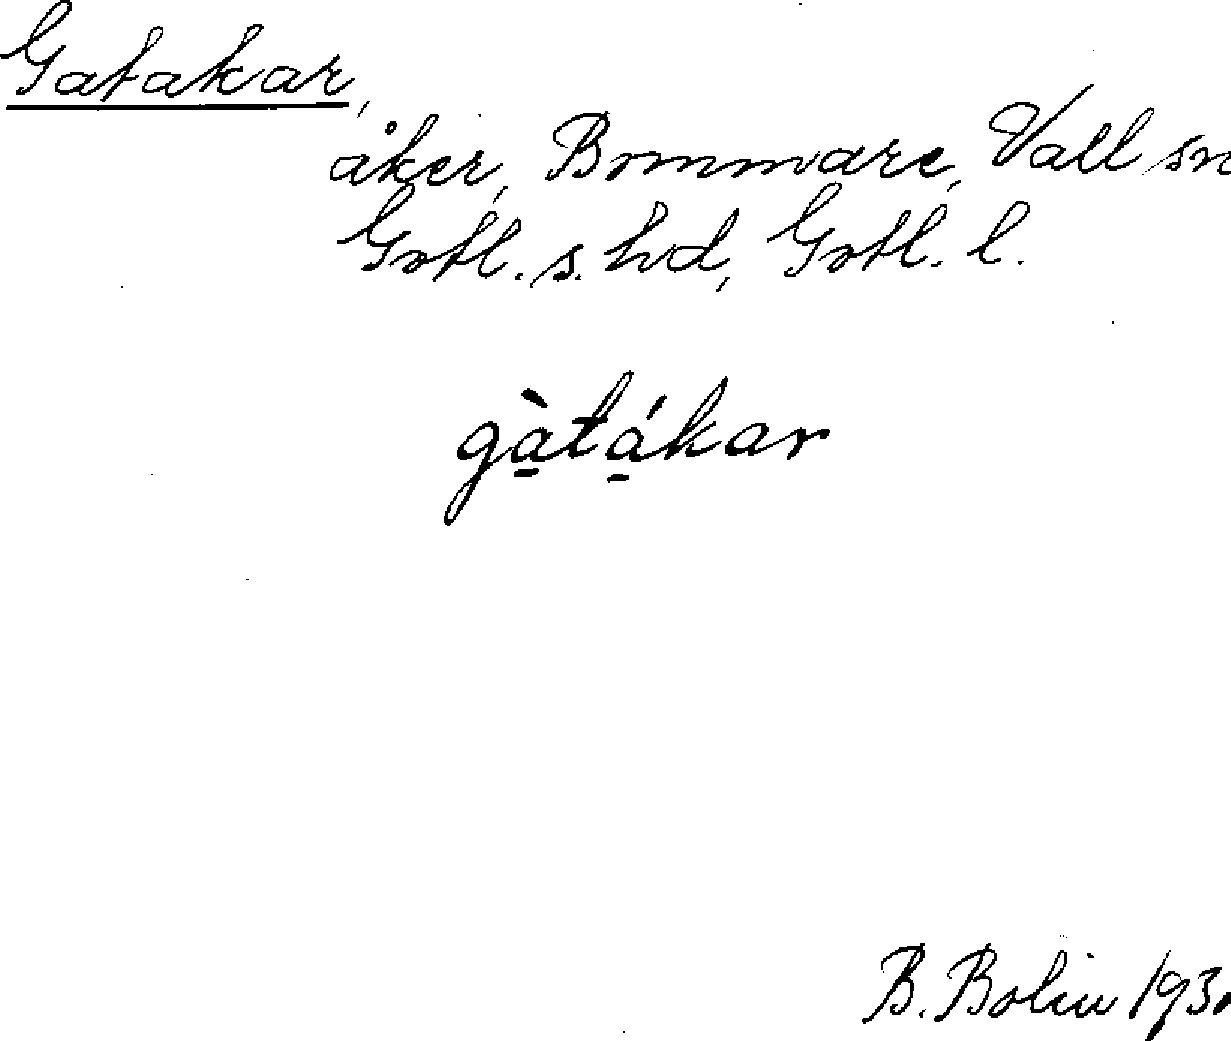 Gatakar,
åker, Bommare, Vall sn
Gotl. s. hd, Gotl. l.
gàtákar
B. Bolin